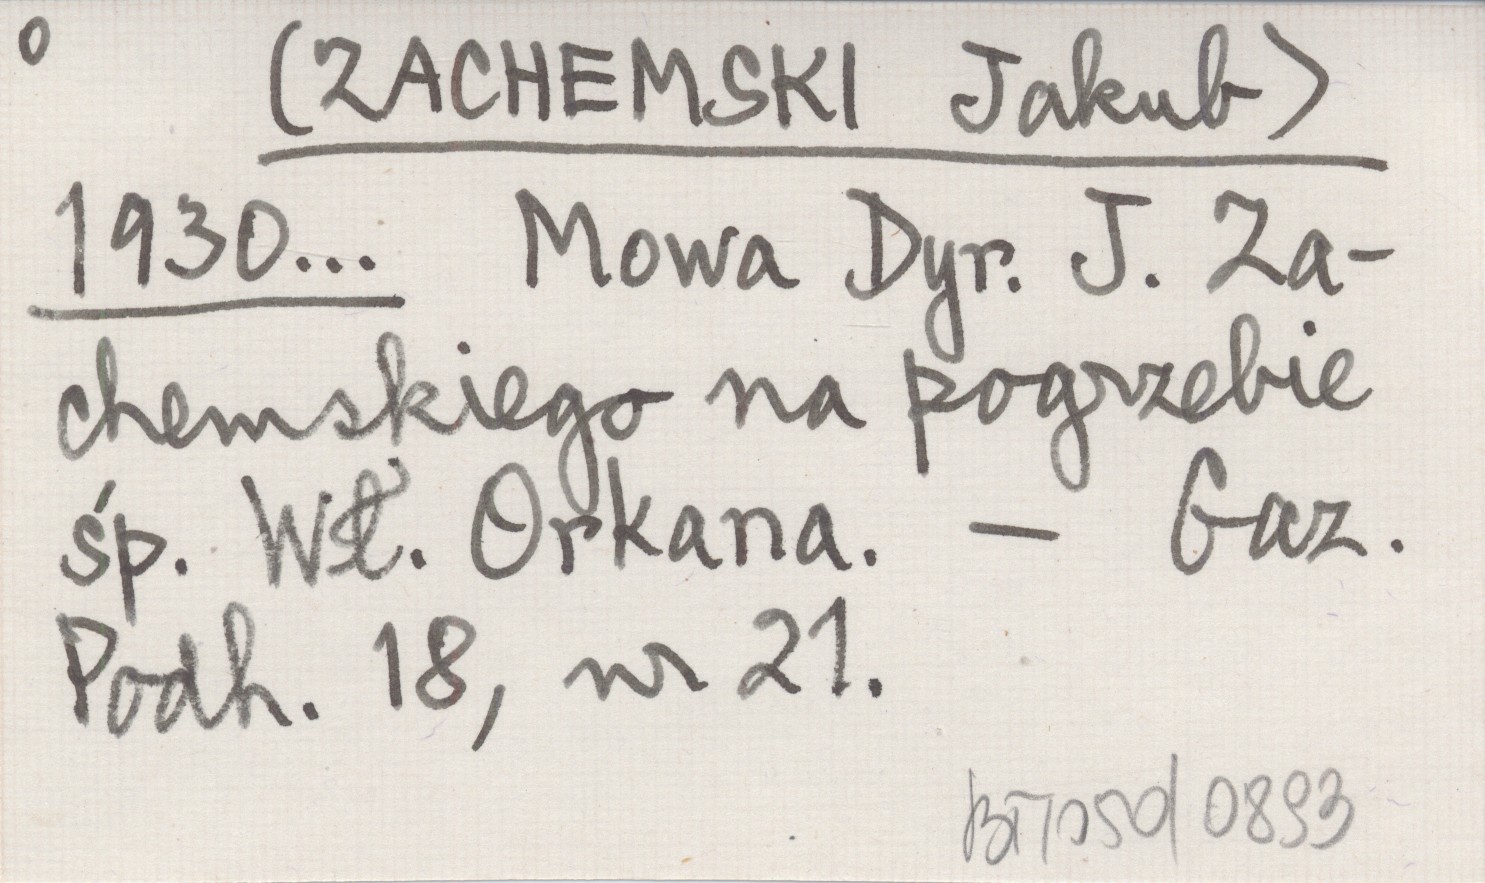 o
(ZACHEMSKI Jakub>
1930... Mowa Dyr. J. Za-
chemskiego na pogrzebie
śp. Wł. Orkana. — Gaz.
Podh. 18, nr 21.
0893